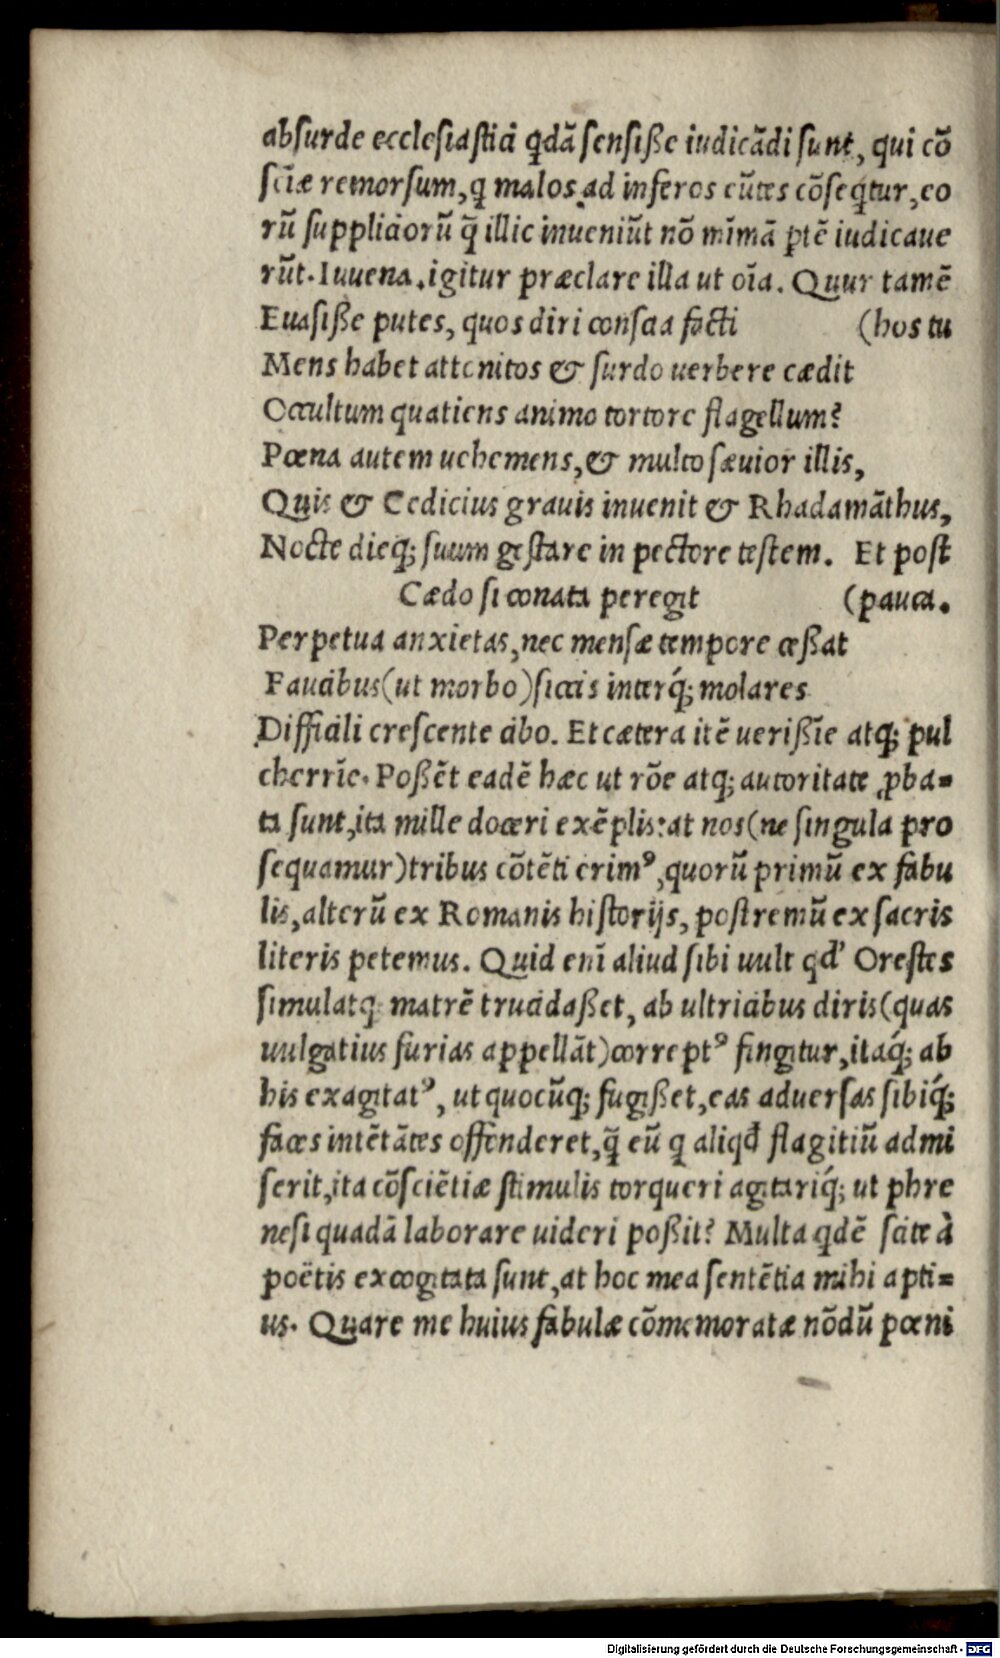 absurde ecclesiastici qdā sensiße iudicādi sunt, qui cō
sciæ remorsum, q malos ad inferos eūtes cōseqtur, eo
rū suppliciorū q̄ illic inveniūt nō mīmā ptē iudicaue
rūt. Iuvena. igitur præclare illa ut oīa. Quur tamē
Evasiße putes, quos diri conscia facti (hos tu
Mens habet attonitos & surdo uerbere cædit
Occultum quatiens animo tortore flagellum?
Pœna autem uehemens, & multo sæuior illis,
Quis & Cedicius gravis invenit & Rhadamāthus,
Nocte dieq; suum gestare in pectore testem. Et post
Cædo si conata peregit (pauca.
Perpetua anxietas, nec mensæ tempore ceßat
Faucibus (ut morbo) siccis interq́; molares
Difficili crescente cibo. Et cætera itē uerißīe atq; pul
cherrīe. Poßēt eadē hæc ut rōe atq; autoritate ꝓba=
ta sunt, ita mille doceri exēplis: at nos (ne singula pro
sequamur) tribus cōtēti erimꝰ, quorū primū ex fabu
lis, alterū ex Romanis historijs, postremū ex sacris
literis petemus. Quid enī aliud sibi uult qd' Orestes
simulatq; matrē trucidaßet, ab ultricibus diris (quas
uulgatius furias appellāt) correptꝰ fingitur, itaq́; ab
his exagitatꝰ, ut quocūq; fugißet, eas aduersas sibiq́;
faces intētātes offenderet, q̄ eū q aliqđ flagitiū admi
serit, ita cōsciētiæ stimulis torqueri agitariq́; ut phre
nesi quadā laborare uideri poßit? Multa qdē scite à
poëtis excogitata sunt, at hoc mea sentētia mihi apti=
us. Quare me huius fabulæ cōmemoratæ nōdū pœni
Digitalisierung gefördert durch die Deutsche Forschungsgemeinschaft - DFG